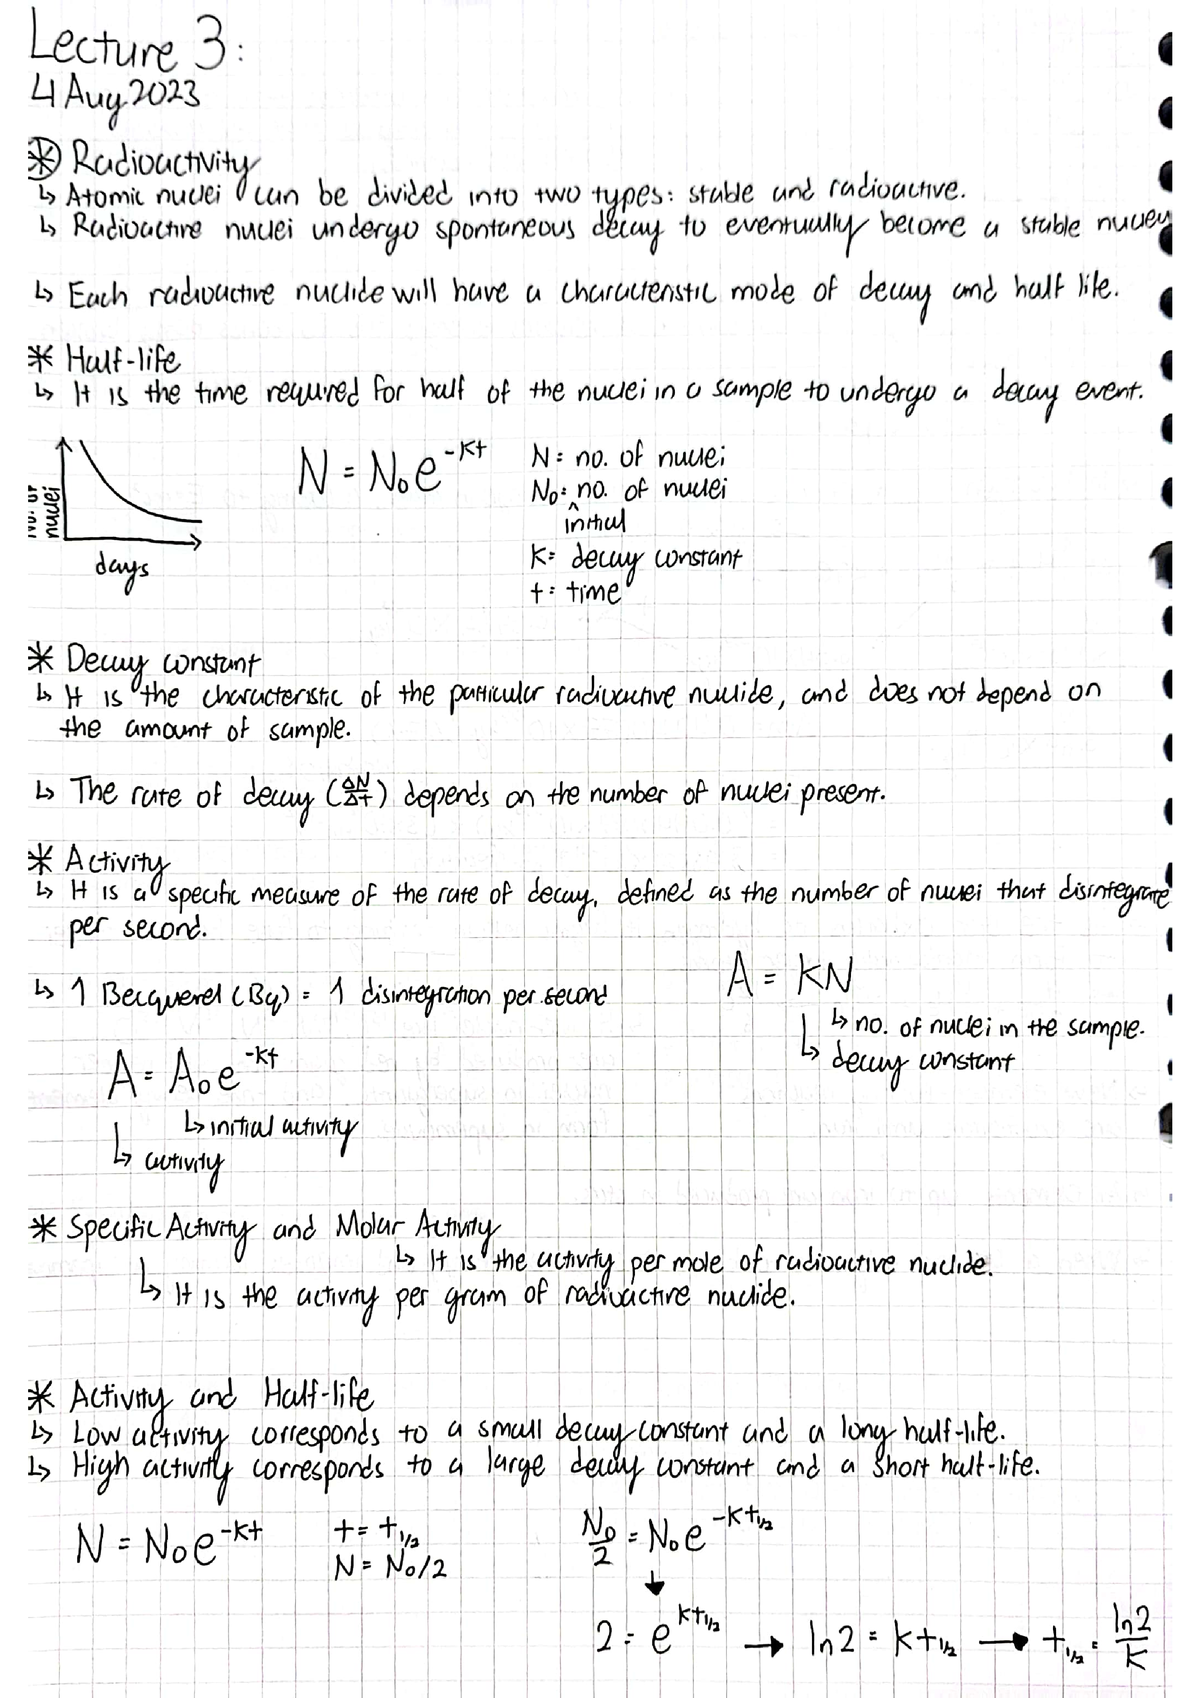 Lecture 3:
4 Aug 2023
* Radioactivity
↳ Atomic nuclei can be divided into two types: stable and radioactive.
↳ Radioactive nuclei undergo spontaneous decay to eventually become a stable nuclei
↳ Each radioactive nuclide will have a characteristic mode of decay and half life.
* Half-life
↳ It is the time required for half of the nuclei in a sample to undergo a decay event.
No. of nuclei
days
N = N₀e^-kt
N = no. of nuclei
N₀ = no. of nuclei
^ initial
k = decay constant
t = time
* Decay constant
↳ It is the characteristic of the particular radioactive nuclide, and does not depend on
the amount of sample.
↳ The rate of decay (ΔN/Δt) depends on the number of nuclei present.
* Activity
↳ It is a specific measure of the rate of decay, defined as the number of nuclei that disintegrate
per second.
↳ 1 Becquerel (Bq) = 1 disintegration per second
A = kN
↳ no. of nuclei in the sample.
↳ decay constant
A = A₀e^-kt
↳ initial activity
↳ activity
* Specific Activity and Molar Activity
↳ It is the activity per mole of radioactive nuclide.
↳ It is the activity per gram of radioactive nuclide.
* Activity and Half-life
↳ Low activity corresponds to a small decay constant and a long half-life.
↳ High activity corresponds to a large decay constant and a short half-life.
N = N₀e^-kt
t = t₁/₂
N = N₀/2
N₀/2 = N₀e^-kt₁/₂
↓
2 = e^kt₁/₂ → ln2 = kt₁/₂ → t₁/₂ = ln2/k